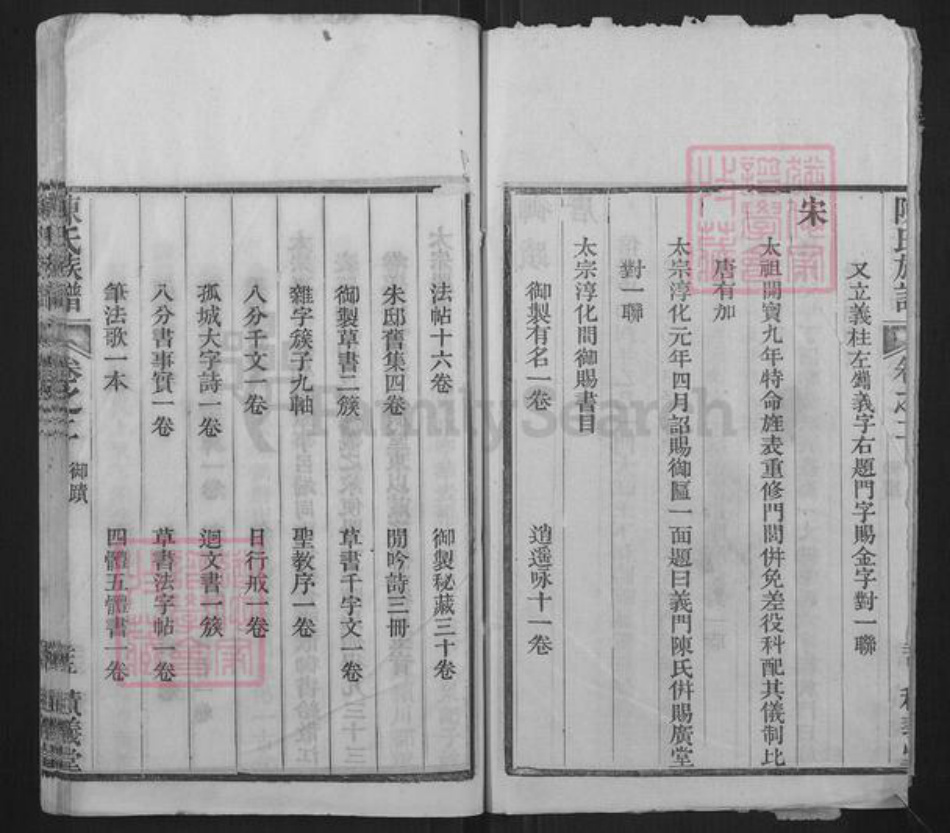 又立義桂左爾義字右題門字賜金字對一聯
宋
太祖開寶九年特命旌表重修門閭併免差役科配其儀制比
唐有加
太宗淳化元年四月詔賜御匾一面題曰義門陳氏併賜廣堂
對一聯
太宗淳化間御賜書目
御製有名一卷 逍遥咏十一卷
法帖十六卷 御製秘藏三十卷
朱邸舊集四卷 閒吟詩三冊
御製草書二簇 草書千字文一卷
雜字簇子九軸 聖教序一卷
八分千文一卷 日行戒一卷
孤城大字詩一卷 迴文書一簇
八分書事實一卷 草書法字帖一卷
筆法歌一本 四體五體書一卷
陳氏族譜 卷之二 御蹟 積義堂
FamilySearch